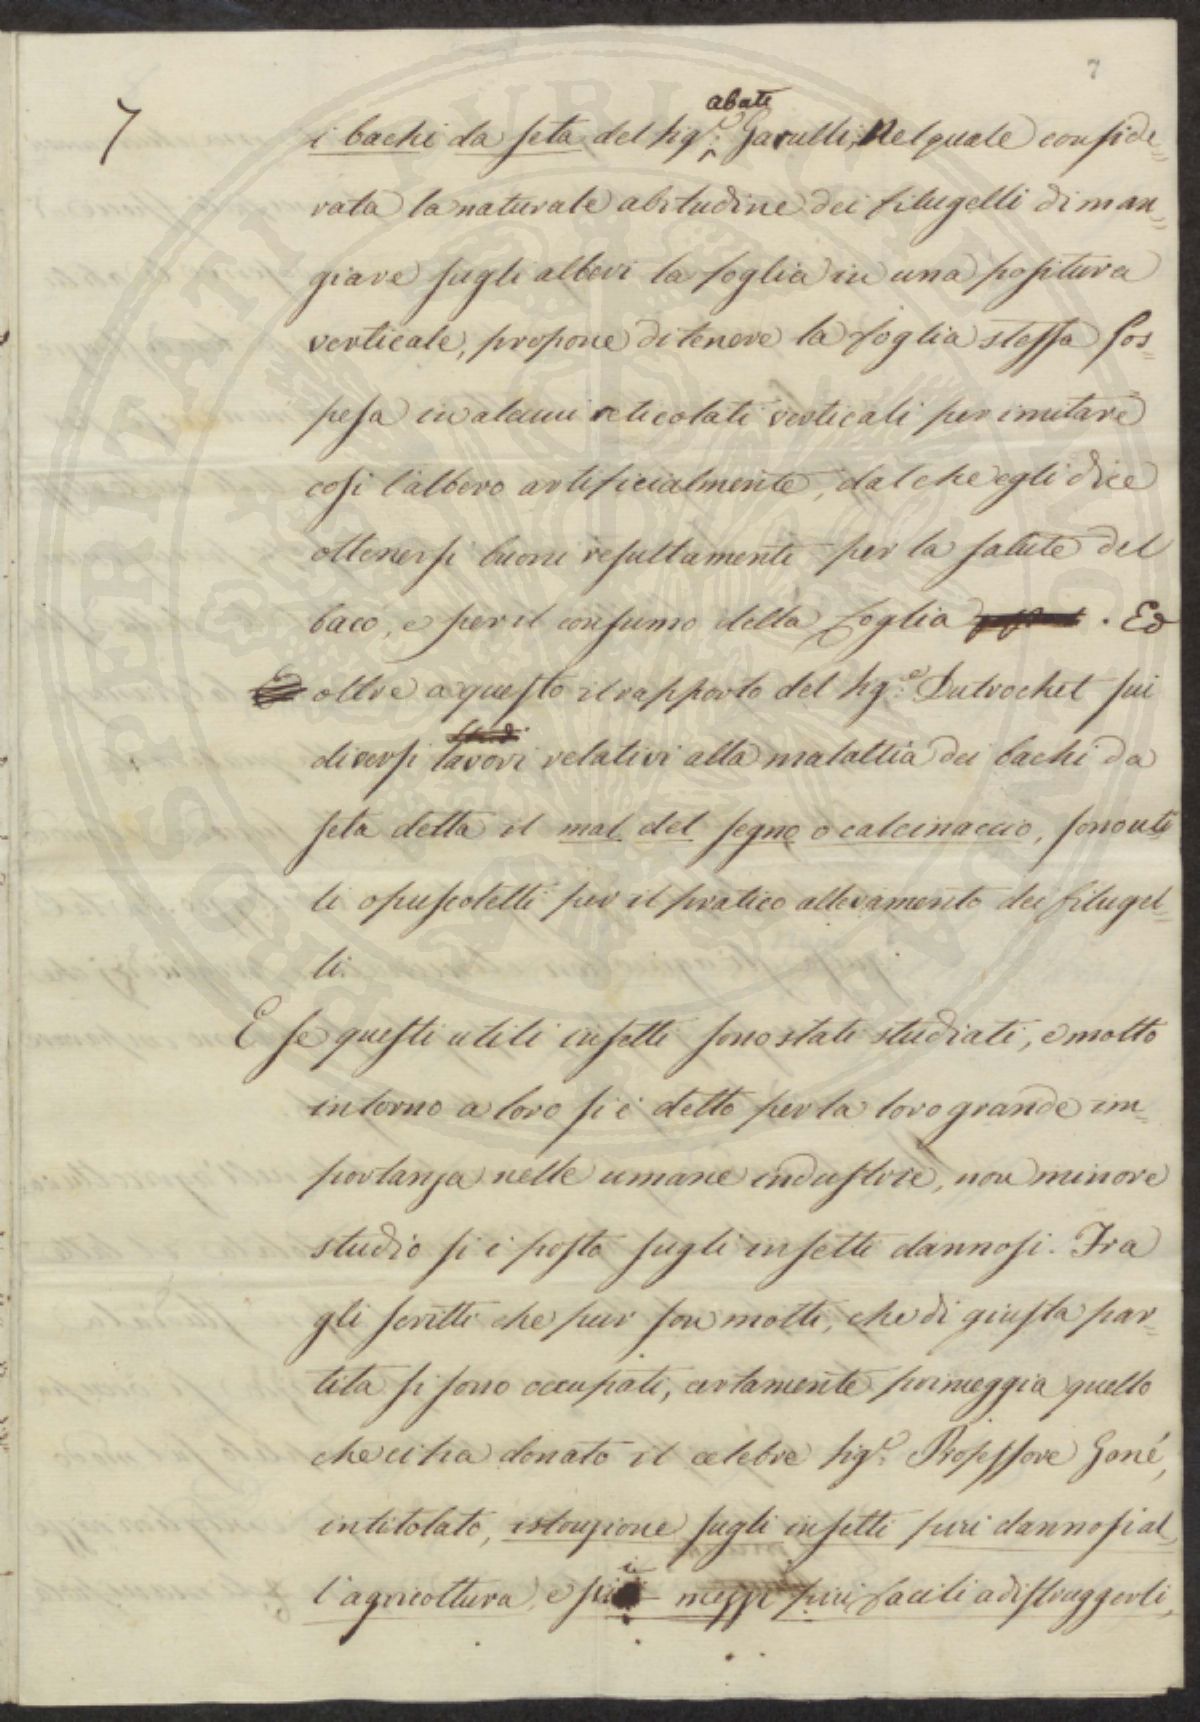 7
7
abate
i bachi da seta del sig.e Garulli, Nel quale conside=
rata la naturale abitudine dei filugelli di man=
giare sugli alberi la foglia in una positura
verticale, propone di tenere la foglia stessa sos=
pesa in alcuni reticolati verticali per imitare
così l'albero artificialmente, dal che egli dice
ottenersi buoni resultamenti per la salute del
baco, e per il consumo della foglia . Ed
oltre a questo il rapporto del sig.e Dutrochet sui
diversi lavori relativi alla malattia dei bachi da
seta detta il mal del segno o calcinaccio, sono uti
li opuscoletti per il pratico allevamento dei filugel=
li.
E se questi utili insetti sono stati studiati, e molto
intorno a loro si è detto per la loro grande im=
portanza nelle umane industrie, non minore
studio si è posto sugli insetti dannosi. Fra
gli scritti che pur son molti, che di giusta par=
tita si sono occupati, certamente primeggia quello
che ci ha donato il celebre sig.e Professore Gené,
intitolato, istruzione sugli insetti più dannosi al=
l'agricoltura, e i mezzi più facili a distruggerli,